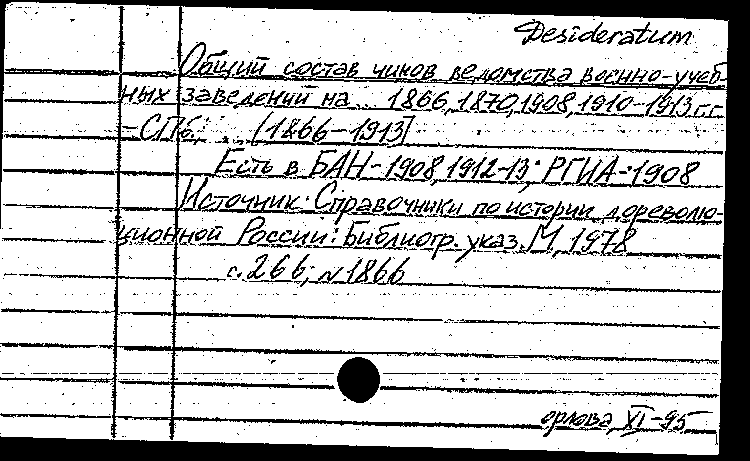 Desideratum
Общий состав чинов ведомства военно-учеб-
ных заведений на... 1866, 1870, 1908, 1910-1913 г.г.
- СПб., [1866-1913]
Есть в БАН-1908, 1912-13; РГИА-1908
Источник: Справочники по истории дореволю-
ционной России: Библиогр. указ. М., 1978
с. 266; №1866
орлова XI-95